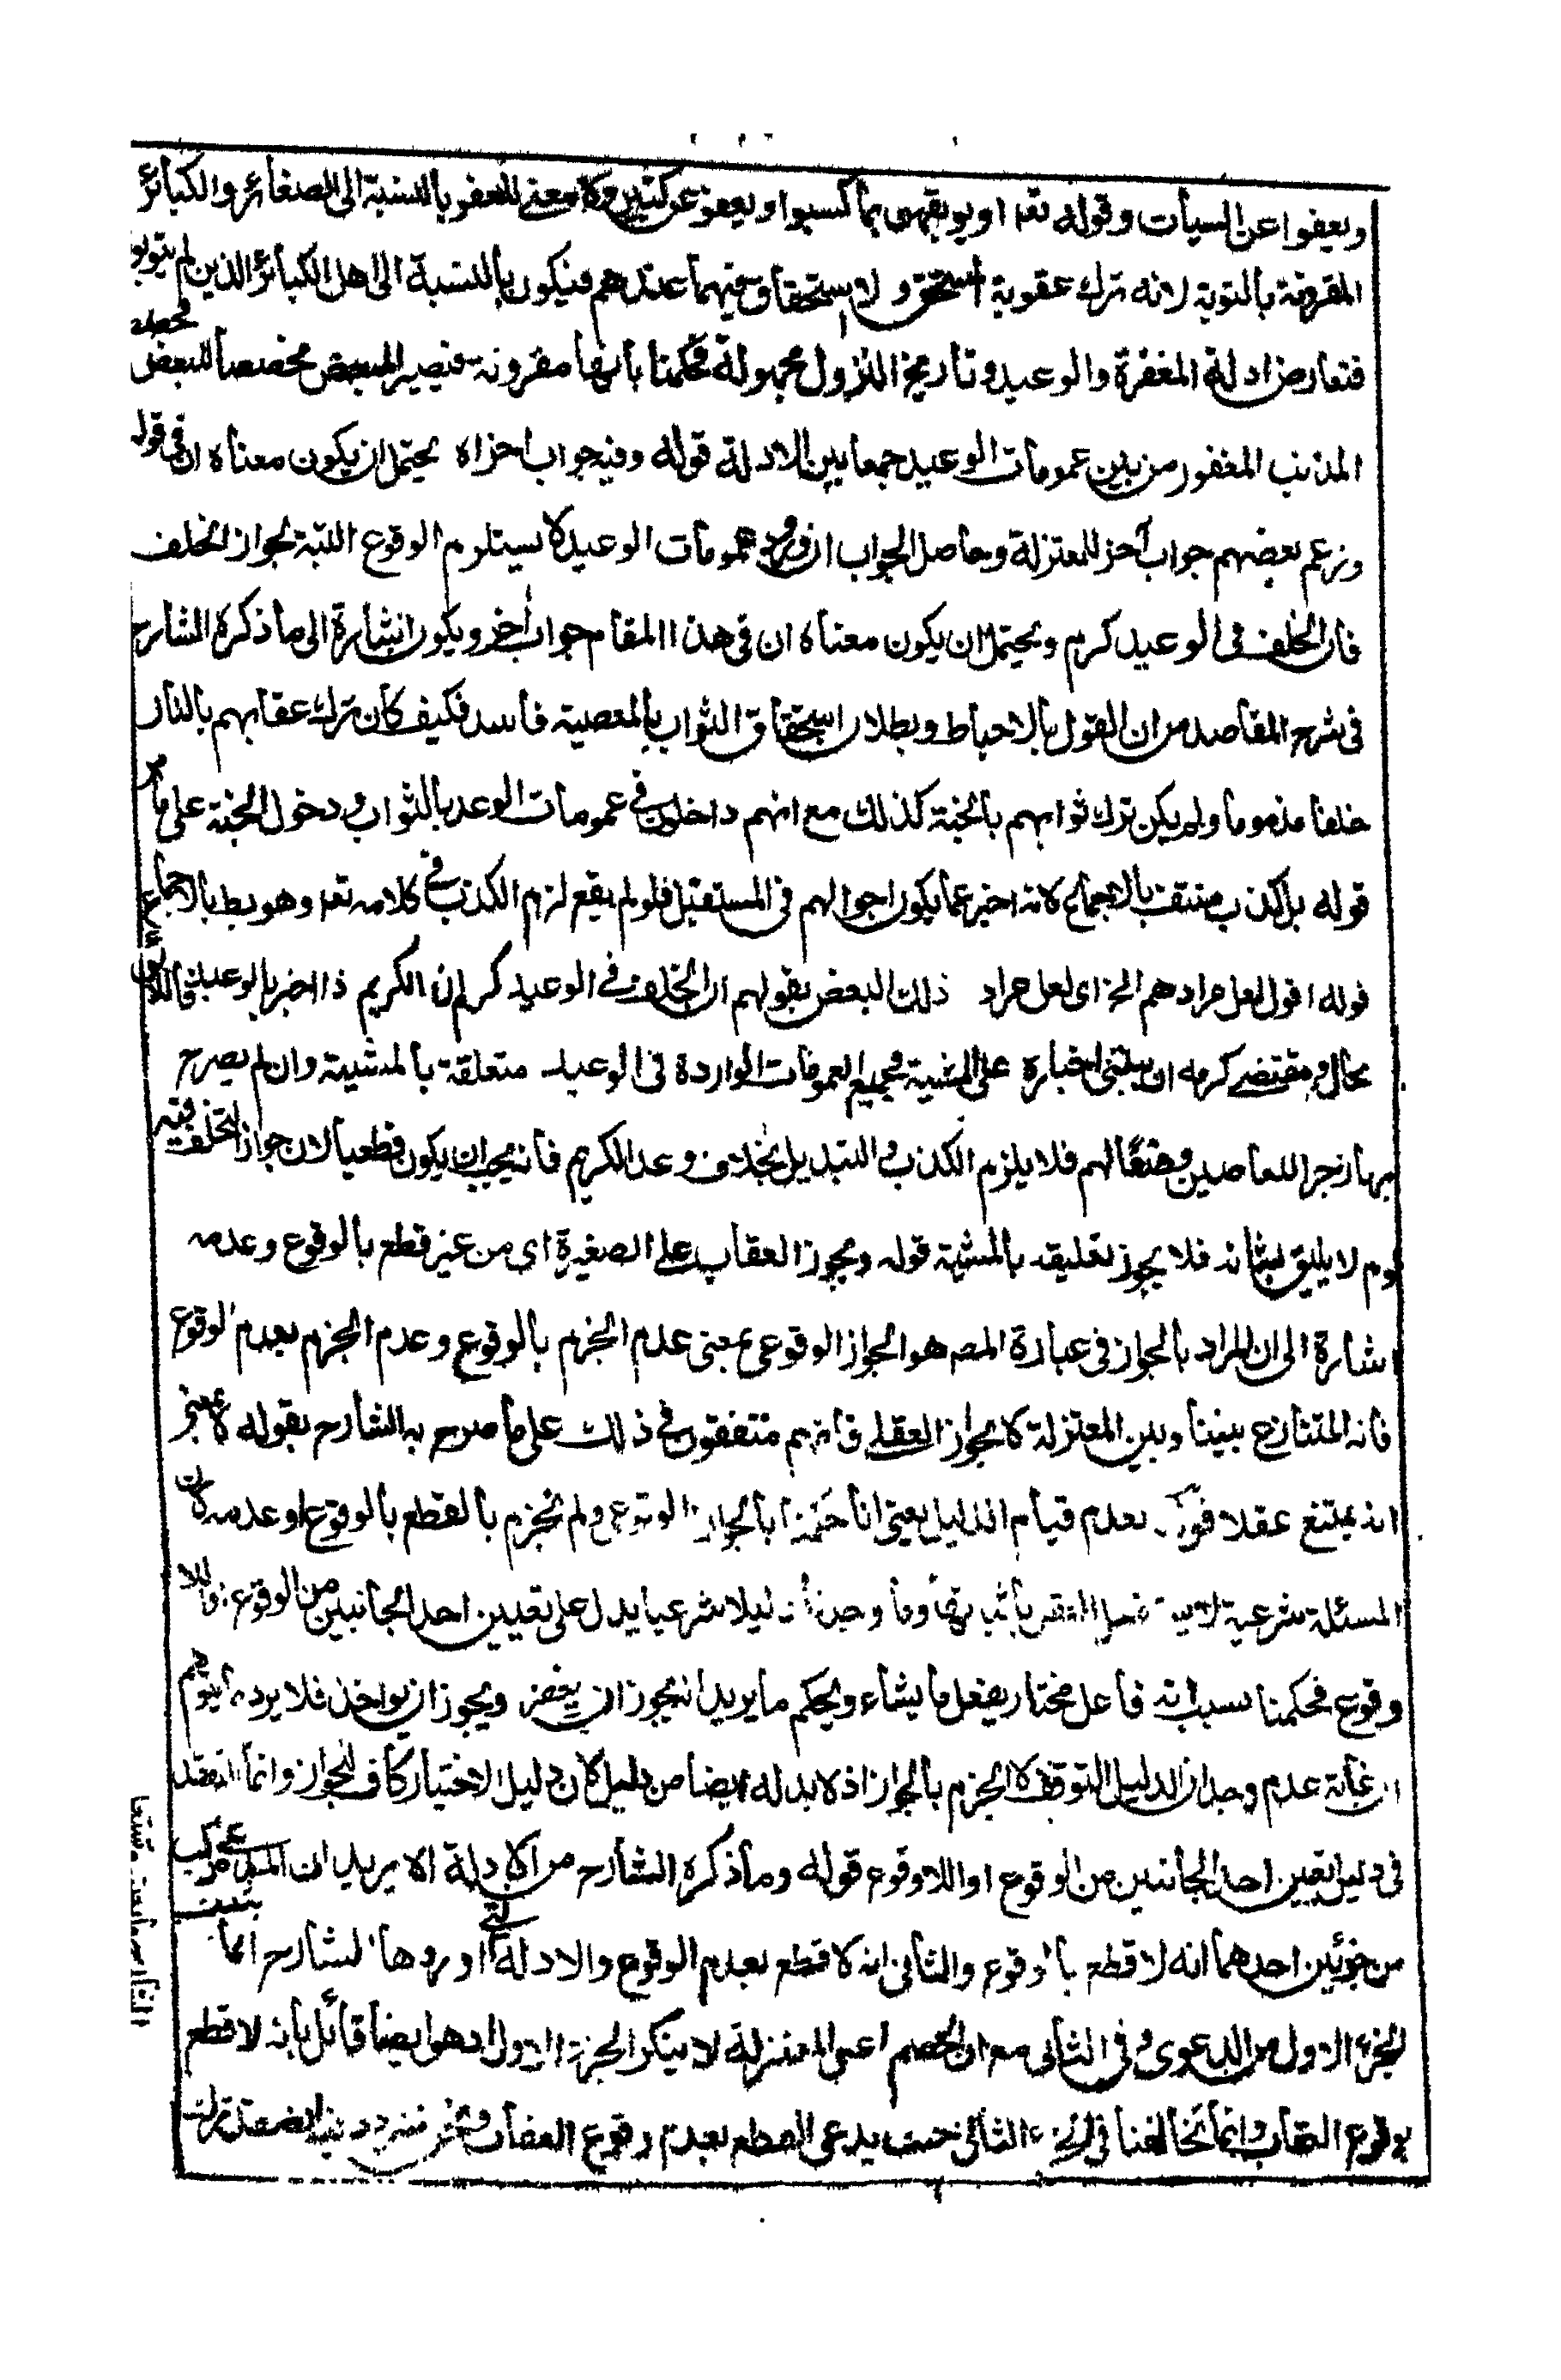 ويعفوا عن السيأت وقوله تعه او يوبقهن بما كسبوا ويعفو عن كثير ولا معنى للعفو بالنسبة الى الصغائر والكبائر
المقرونة بالتوبة لانه ترك عقوبة المستحق ولا استحقاق فيهما عندهم فيكون بالنسبة الى اهل الكبائر الذين لم يتوبوا
فتعارض ادلة المغفرة والوعيد وتاريخ النزول مجهولة فحكمنا بانها مقرونة فيصير البعض مخصصا للبعض فخصص
المذنب المغفور من بين عمومات الوعيد جمعا بين الادلة قوله وفيه جواب اخراه يحتمل ان يكون معناه ان في قوله
وزعم بعضهم جواب آخر للمعتزلة وحاصل الجواب ان ورود عمومات الوعيد لا يستلزم الوقوع البتة لجواز الخلف
فان الخلف في الوعيد كرم ويحتمل ان يكون معناه ان في هذا المقام جواب آخر ويكون اشارة الى ما ذكره الشارح
في شرح المقاصد من ان القول بالاحباط وبطلان استحقاق الثواب بالمعصية فاسد فكيف كان ترك عقابهم بالنار
خلفا مذموما ولم يكن ترك ثوابهم بالجنة كذلك مع انهم داخلون في عمومات الوعد بالثواب ودخول الجنة على ما مر
قوله بل كذب منتف بالاجماع لانه اخبر عما يكون احوالهم في المستقبل فلو لم يقع لزم الكذب في كلامه تعه وهو بط بالاجماع
قوله اقول لعل مرادهم الخ اى لعل مراد ذلك البعض بقولهم ان الخلف في الوعيد كرم ان الكريم اذا اخبر بالوعيد فاللائق
بحاله ومقتضى كرمه ان يبتنى اخباره على المشية فجميع العمومات الواردة في الوعيد متعلقة بالمشية وان لم يصرح
بها زجرا للعاصين ومنعا لهم فلا يلزم الكذب والتبديل بخلاف وعد الكريم فانه يجب ان يكون قطعيا لان جواز التخلف فيه
لوم لا يليق بشانه فلا يجوز تعليقه بالمشية قوله ويجوز العقاب على الصغيرة اى من غير قطع بالوقوع وعدمه
اشارة الى ان المراد بالجواز في عبارة المصه هو الجواز الوقوعى بمعنى عدم الجزم بالوقوع وعدم الجزم بعدم الوقوع
فانه المتنازع بيننا وبين المعتزلة لا الجواز العقلى فانهم متفقون في ذلك على ما صرح به الشارح بقوله لا بمعنى
انه يمتنع عقلا قوله لعدم قيام الدليل يعنى انا حكمنا بالجواز الوقوعى ولم نجزم بالقطع بالوقوع او عدمه لان
المسئلة شرعية وما وجدنا دليلا شرعيا يدل على تعيين احد الجانبين من الوقوع واللا
وقوع فحكمنا بسبب انه فاعل مختار يفعل ما يشاء ويحكم ما يريد انه يجوز ان يغفر ويجوز ان يواخذ فلا يرد ما يتوهم
ان غاية عدم وجدان الدليل التوقف لا الجزم بالجواز اذ لا بد له ايضا من دليل لان دليل الاختيار كاف للجواز وانما
في دليل تعين احد الجانبين من الوقوع او اللاوقوع قوله وما ذكره الشارح من الادلة الا يريد ان المدعى مركب
من جزئين احدهما انه لا قطع بالوقوع والثانى انه لا قطع بعدم الوقوع والادلة التى اوردها الشارح انما تثبت
الجزء الاول من الدعوى وفي الثانى مع ان الخصم اعنى المعتزلة لا ينكر الجزء الاول اذ هو ايضا قائل بانه لا قطع
بوقوع العقاب وانما يخالفنا في الجزء الثانى حيث يدعى القطع بعدم وقوع العقاب ونحن